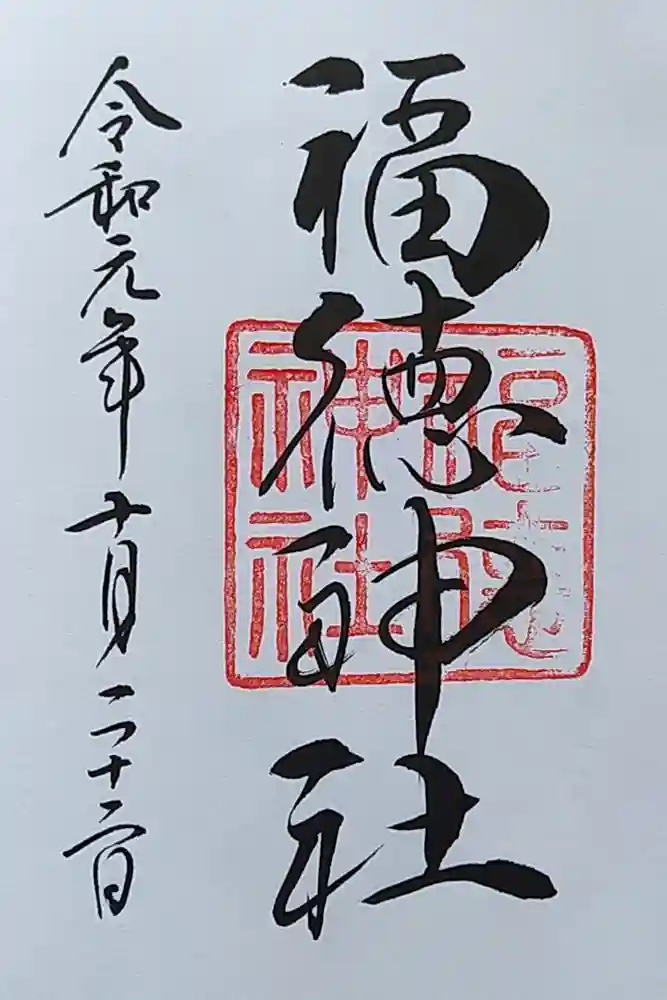 福徳神社
福徳
神社
令和元年十月二十二日